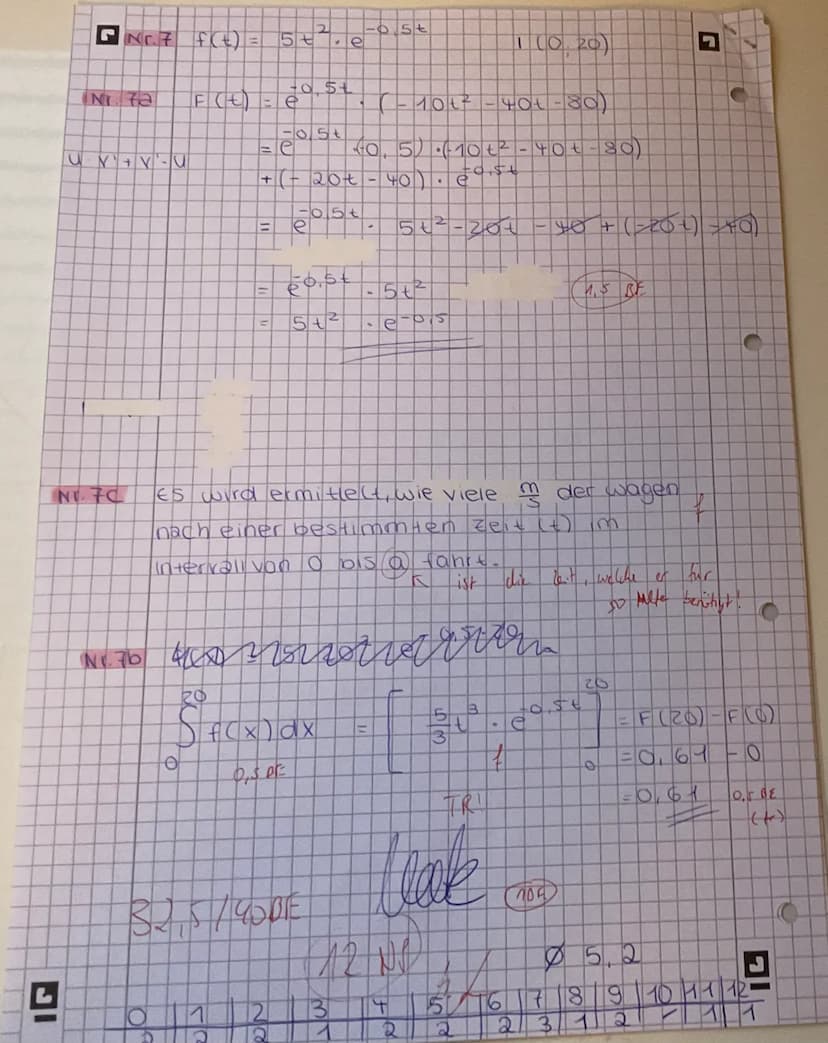 Nr. 7 f(t) = 5t² · e^-0,5t I (0, 20)
Nr. 7a F(t) = e^-0,5t · (-10t² - 40t - 80)
= e^-0,5t (-0,5) · (-10t² - 40t - 80)
u · v' + v' · u
+ (- 20t - 40) · e^-0,5t
= e^-0,5t · 5t² - 20t - 40 + (-20t) - 40)
= e^-0,5t · 5t² 1,5 BE
= 5t² · e^-0,5
Nr. 7c Es wird ermittelt, wie viele m/s der wagen
nach einer bestimmten Zeit (t) im f
Intervall von 0 bis a fährt.
ist die Zeit, welche er für
50 Meter benötigt!
Nr. 7b
∫₀²⁰ f(x) dx = [ 5/3 t³ · e^-0,5t ]₀²⁰ = F(20) - F(0)
0,5 BE f = 0,61 - 0
TR! = 0,61 0,5 BE
(t)
32,5/40BE
12 NP Ø 5,2
0 | 1 | 2 | 3 | 4 | 5 | 6 | 7 | 8 | 9 | 10 | 11 | 12
2 | 2 | 2 | 1 | 2 | 2 | 2 | 3 | 1 | 2 | - | 1 | 1